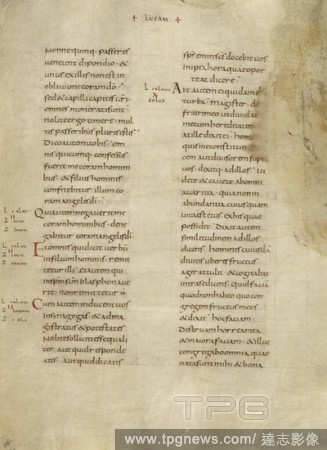 + LUCAN +
Nonne quinq. passeres
veneunt dipondio &
unus ex illis non est in
oblivione coram dō
sed & capilli capitis vr̄i
omnes numerati sunt
nolite ergo timere mul
tis passeribus pluris estis
Dico autem vobis om
nis quicumq. confessus
fuerit me coram homini
bus & filius hominis
confitebitur illum co
ram angelis dī
Qui autem negaverit me
coram hominibus dene
gabitur coram angelis dī
Et omnis qui dicit verbū
in filium hominis remit
tetur illi ei autem qui
in spm scm blasphemave
rit non remittetur
Cum autem inducent vos
in sinagogas & ad ma
gistratus & potestates
Nolite solliciti esse quali
ter aut quid respondea
tis aut quid dicatis
sps enim scs docebit vos
in ipsa hora quae opor
teat dicere
Ait autem ei quidam de
turba magister dic
fratri meo ut dividat
mecum hereditatem
at ille dixit ei homo
quis me constituit
cem aut divisorem super
vos dixitq. ad illos vi
dete & cavete ab omni
avaritia quia non in
abundantia cuiusquam
vita eius est ex his quae
possidet Dixit autem
similitudinem ad illos
divitis hominis cuiusdā
uberes fructus
ager attulit & cogitabat
intra se dicens quid faciā
quod non habeo quo con
gregem fructus meos
& dixit hoc faciam
Destruam horrea mea
& maiora faciam & illuc
congregabo omnia quae
nata sunt mihi & bona
TPG
www.tpgnews.com / 達志影像